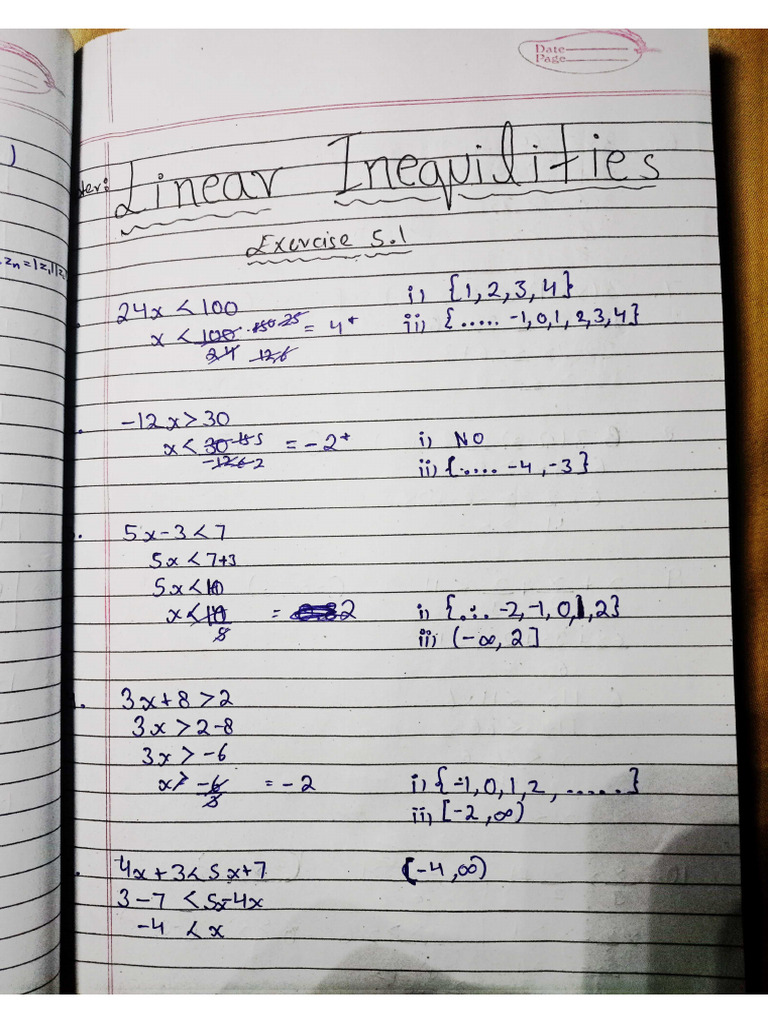 Date
Page
Linear Inequilities
Exercise 5.1
24x < 100
i) {1, 2, 3, 4}
x < 100/24 = 4⁺
ii) {..... -1, 0, 1, 2, 3, 4}
-12x > 30
x < 30/-12 = -2⁺
i) NO
ii) {..... -4, -3}
5x - 3 < 7
5x < 7+3
5x < 10
x < 10/5 = 2
i) {... -2, -1, 0, 1, 2}
ii) (-∞, 2]
3x + 8 > 2
3x > 2 - 8
3x > -6
x > -6/3 = -2
i) {-1, 0, 1, 2, ......}
ii) [-2, ∞)
4x + 3 < 5x + 7
(-4, ∞)
3 - 7 < 5x - 4x
-4 < x